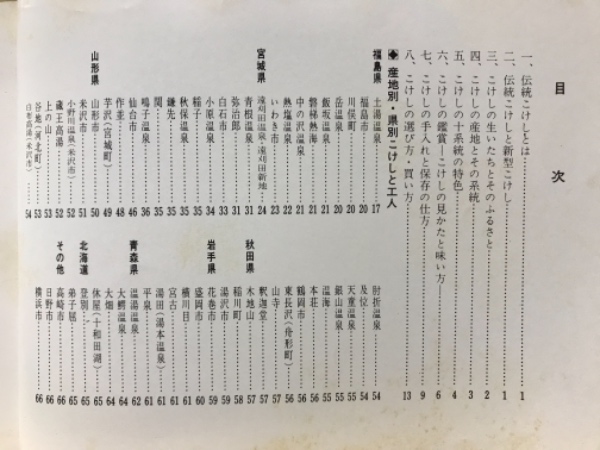 目次
一、伝統こけしとは……1
二、伝統こけしと新型こけし……1
三、こけしの生いたちとそのふるさと……2
四、こけしの産地とその系統……3
五、こけしの十系統の特色……4
六、こけしの鑑賞―こけしの見かたと味い方―……6
七、こけしの手入れと保存の仕方……9
八、こけしの選び方・買い方……13
◆産地別・県別こけしと工人
福島県
土湯温泉……17
福島市……20
川俣町……20
岳温泉……20
飯坂温泉……21
磐梯熱海……21
中の沢温泉……21
熱塩温泉……22
いわき市……23
宮城県
遠刈田温泉・遠刈田新地……24
青根温泉……31
弥治郎……31
白石市……33
小原温泉……34
稲子……35
秋保温泉……35
鎌先……35
関……35
鳴子温泉……36
仙台市……46
作並……48
芋沢(宮城町)……49
山形県
山形市……50
米沢市……51
小野川温泉(米沢市)……52
蔵王高湯……52
上の山……53
谷地(河北町)……53
白布高湯(米沢市)……54
肘折温泉……54
及位……54
天童温泉……55
銀山温泉……55
温海……55
本荘……56
鶴岡市……56
東長沢(舟形町)……56
山寺……57
釈迦堂……57
秋田県
木地山……57
稲川町……58
湯沢市……59
岩手県
花巻市……59
盛岡市……60
横川目……61
宮古……61
湯田(湯本温泉)……61
平泉……61
青森県
温湯温泉……62
大鰐温泉……64
大畑……64
休屋(十和田湖)……65
北海道
登別……65
弟子屈……65
その他
高崎市……66
日野市……66
横浜市……66